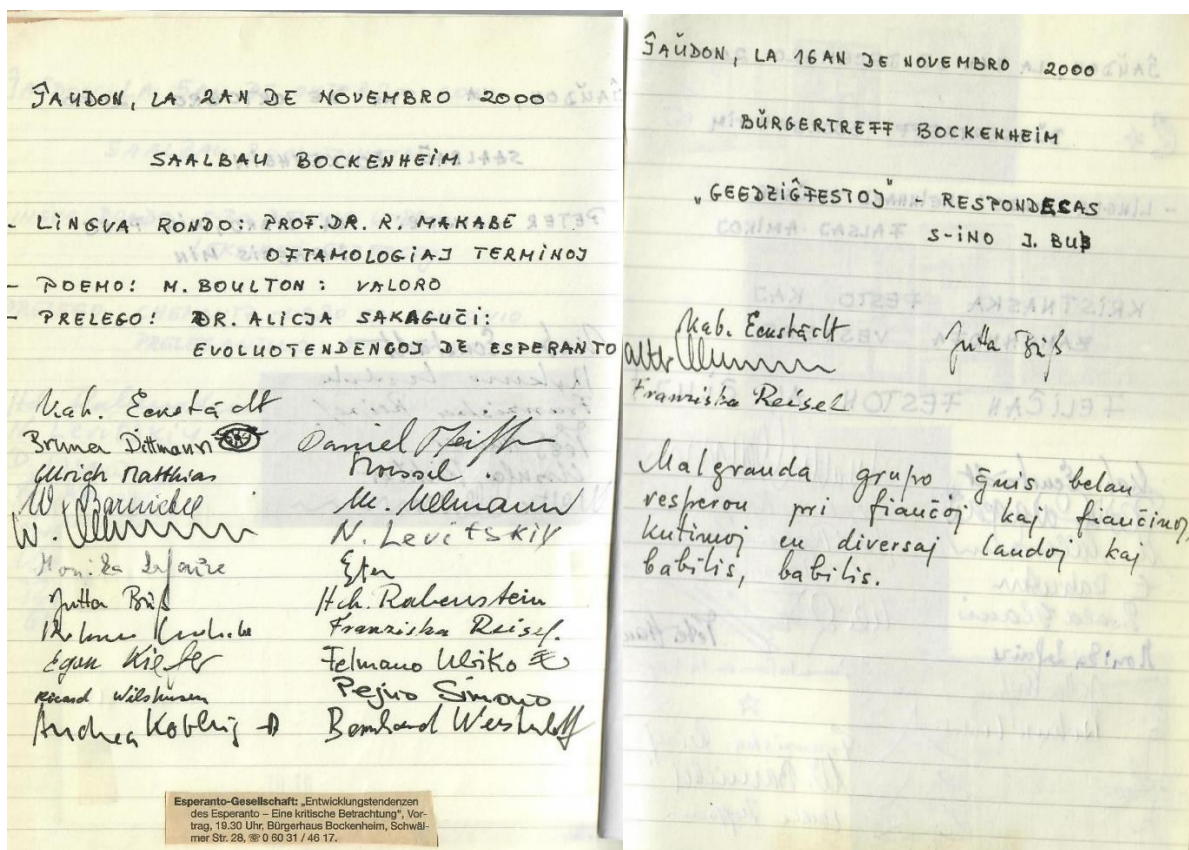 ĴAŬDON, LA 2AN DE NOVEMBRO 2000
SAALBAU BOCKENHEIM
- LINGVA RONDO: PROF.DR. R. MAKABE
OFTAMOLOGIAJ TERMINOJ
- POEMO: M. BOULTON: VALORO
- PRELEGO: DR. ALICJA SAKAGUĈI:
EVOLUOTENDENGOJ DE ESPERANTO
Kah. Eckstädt
Bruna Dittmann
Daniel
Ulrich Matthias
W. Barnickel
M. Ullmann
W.
N. Levitskiy
Monika
Jutta Büß
Hch. Rabenstein
Franziska Reisel.
Egon Kiefer
Felmano Ulriko
Rikard Wilshusen
Pejno Simono
Andrea
Bernhard
Esperanto-Gesellschaft: „Entwicklungstendenzen
des Esperanto – Eine kritische Betrachtung“, Vor-
trag, 19.30 Uhr, Bürgerhaus Bockenheim, Schwäl-
mer Str. 28, ☏ 0 60 31 / 46 17.
ĴAŬDON, LA 16AN DE NOVEMBRO 2000
BÜRGERTREFF BOCKENHEIM
„GEEDZIĜFESTOJ" - RESPONDECAS
S-INO J. BUß
Kab. Eckstädt
Jutta Büß
Franziska Reisel
Malgranda grupo ĝuis belan
vesperon pri fianĉoj kaj fianĉinoj,
kutimoj en diversaj landoj kaj
babilis, babilis.